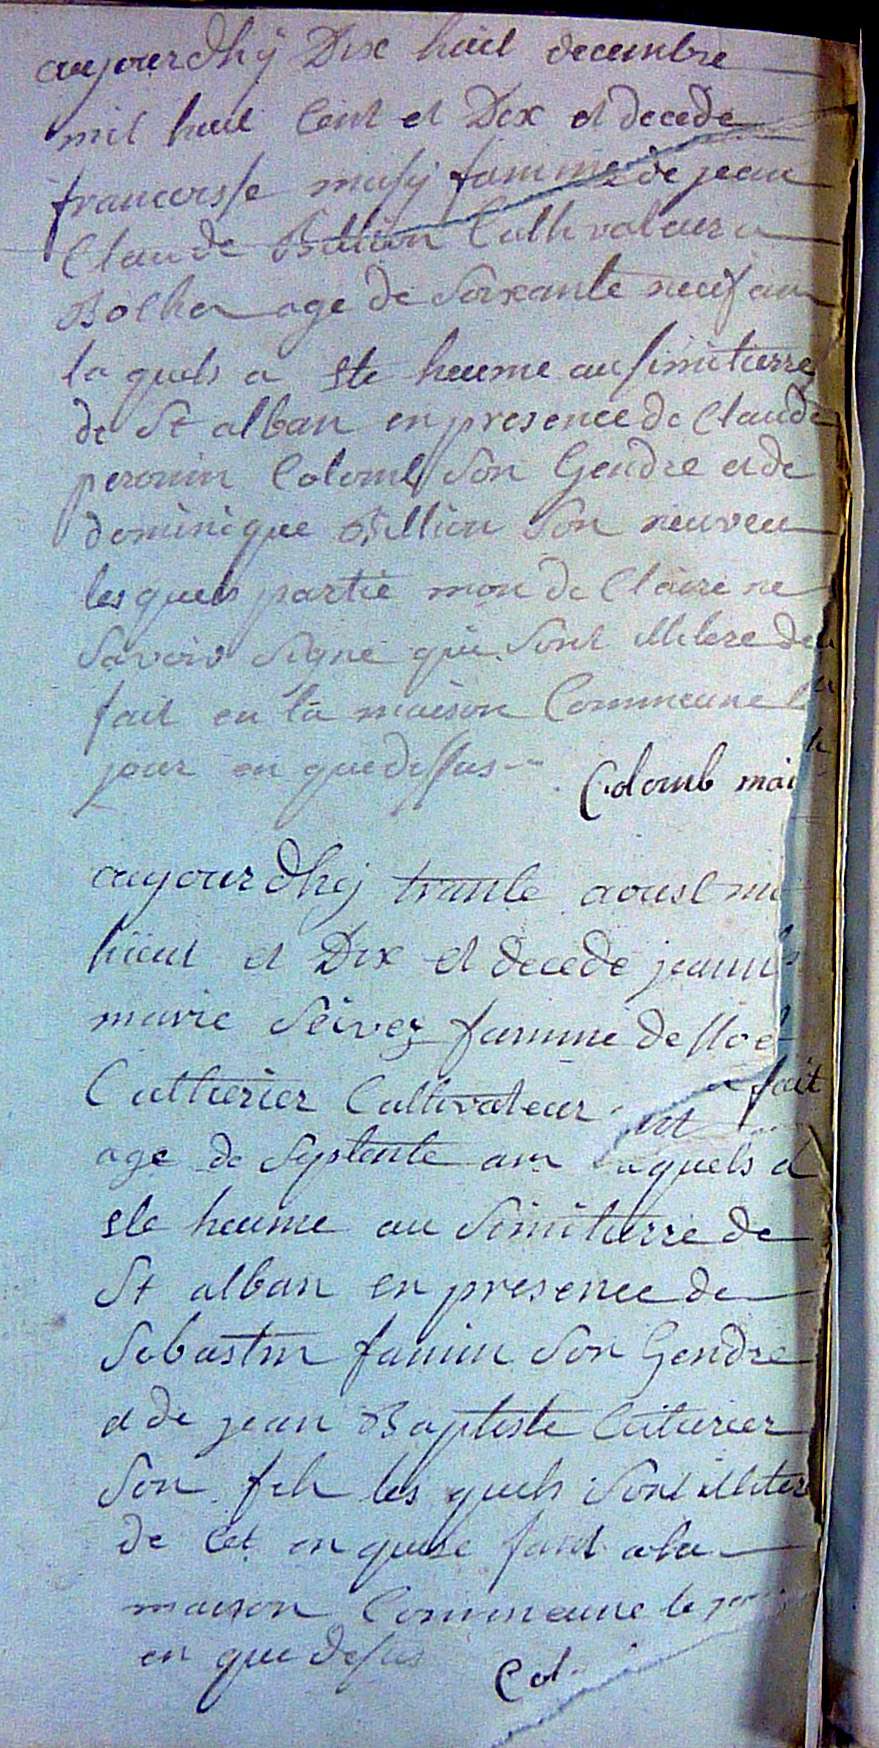 aujourdhÿ Dix huit decembre
mil huit Cent et Dix et decede
francoisse musy famme de jean
Claude Billion Cultivateur a
age de Soixante neuf an
la quels a ete heume au simitierre
de St alban en presence de Claude
peronin Colomb Son Gendre et de
dominique Billion Son neuveu
les quels partie mon de Claire ne
Savoir Signe que Sont illitere de
fait en la maison Commeune le
jour en que dessus
Colomb mai
aujourdhÿ trante aoust mi
huit et Dix et decede jeanne
marie Seivez famme de Noel
Cutturier Cultivateur
fait
age de Septente an quels a
ete heume au Simitierre de
St alban en presence de
Sebastin famin Son Gendre
et de jean Baptiste Cuturier
Son fils les quels Sont illitere
de Cet en quise fait a la
maison Commeune le jour
en que desus
Col